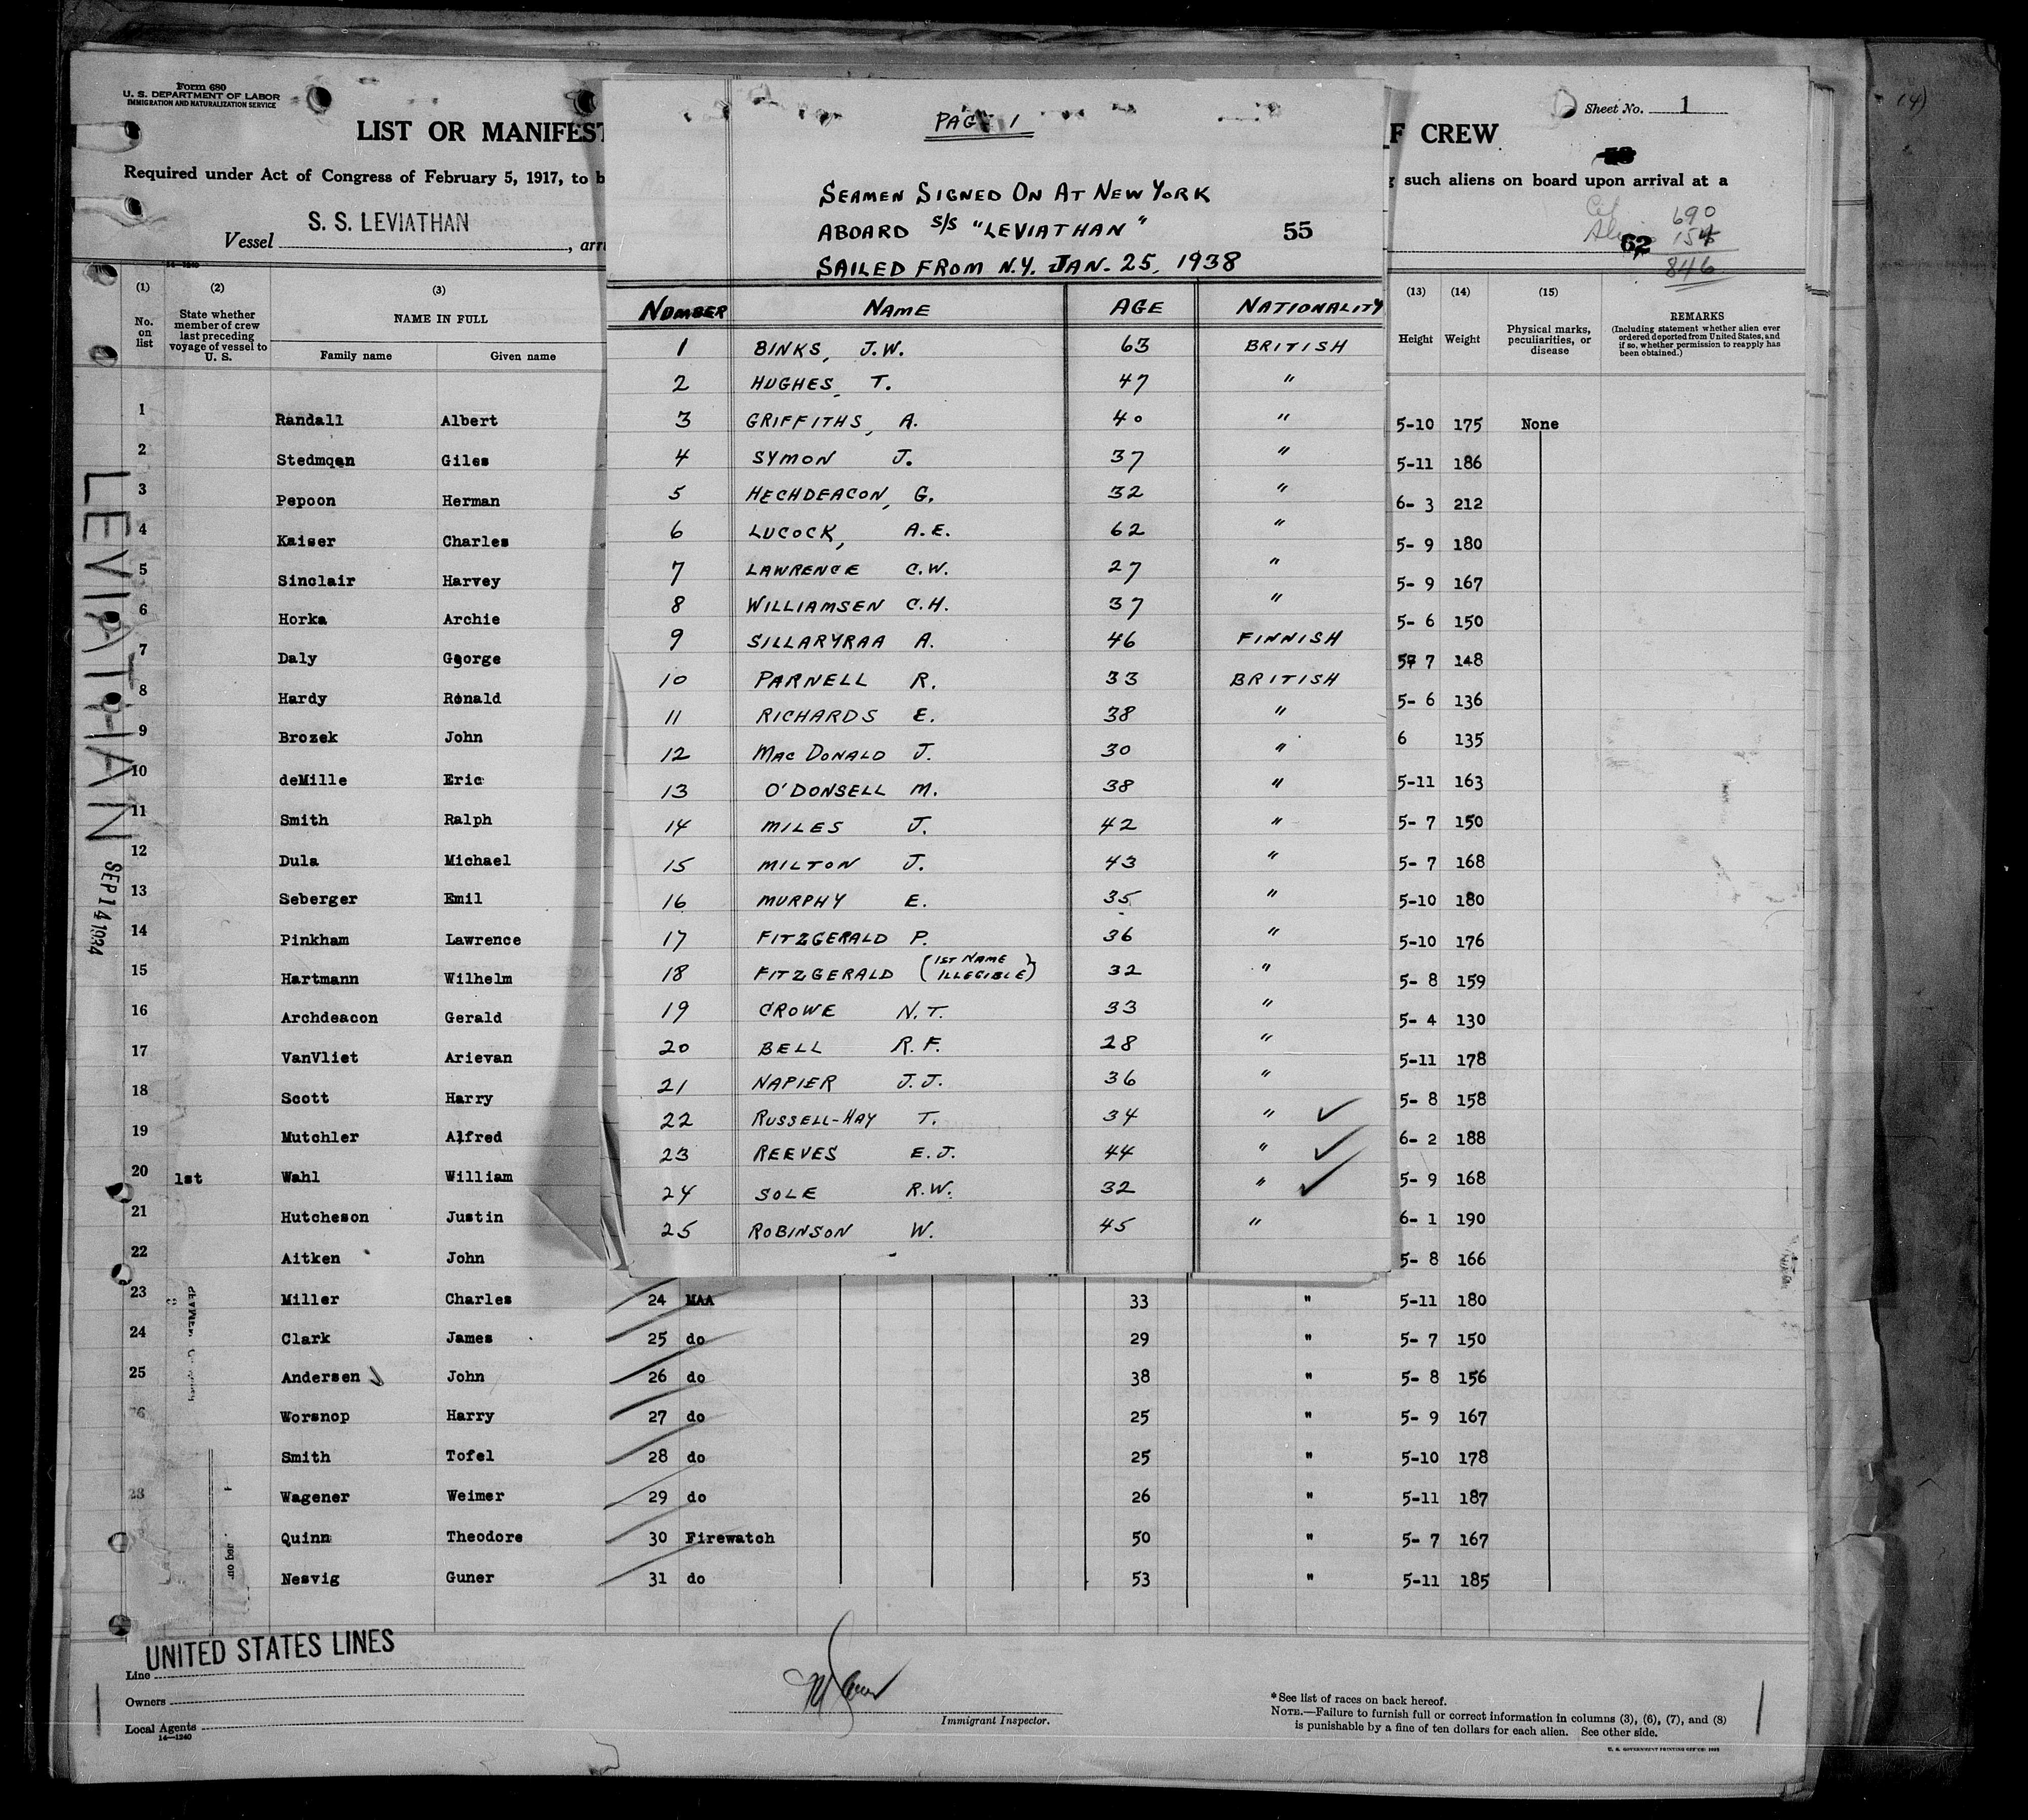 Form 680
U. S. DEPARTMENT OF LABOR
IMMIGRATION AND NATURALIZATION SERVICE
Sheet No. 1
LIST OR MANIFEST
F CREW
Required under Act of Congress of February 5, 1917, to b
such aliens on board upon arrival at a
S. S. LEVIATHAN
Vessel , arri
690
154
62
846
PAGE 1
SEAMEN SIGNED ON AT NEW YORK
ABOARD S/S "LEVIATHAN" 55
SAILED FROM N.Y. JAN. 25, 1938
NUMBER NAME AGE NATIONALITY
1 BINKS, J.W. 63 BRITISH
2 HUGHES, T. 47 "
3 GRIFFITHS, A. 40 "
4 SYMON J. 37 "
5 HECHDEACON, G. 32 "
6 LUCOCK, A.E. 62 "
7 LAWRENCE C.W. 27 "
8 WILLIAMSEN C.H. 37 "
9 SILLARYRAA A. 46 FINNISH
10 PARNELL R. 33 BRITISH
11 RICHARDS E. 38 "
12 MAC DONALD J. 30 "
13 O'DONSELL M. 38 "
14 MILES J. 42 "
15 MILTON J. 43 "
16 MURPHY E. 35 "
17 FITZGERALD P. 36 "
18 FITZGERALD (1ST NAME ILLEGIBLE) 32 "
19 CROWE N.T. 33 "
20 BELL R.F. 28 "
21 NAPIER J.J. 36 "
22 RUSSELL-HAY T. 34 " ✓
23 REEVES E.J. 44 " ✓
24 SOLE R.W. 32 " ✓
25 ROBINSON W. 45 "
(1) (2) (3) (13) (14) (15)
No. on list
State whether member of crew last preceding voyage of vessel to U. S.
NAME IN FULL
Family name Given name
Height Weight
Physical marks, peculiarities, or disease
REMARKS
(Including statement whether alien ever ordered deported from United States, and if so, whether permission to reapply has been obtained.)
1 Randall Albert 5-10 175 None
2 Stedmqan Giles 5-11 186
3 Pepoon Herman 6- 3 212
4 Kaiser Charles 5- 9 180
5 Sinclair Harvey 5- 9 167
6 Horka Archie 5- 6 150
7 Daly George 5- 7 148
8 Hardy Ronald 5- 6 136
9 Brozek John 6 135
10 deMille Eric 5-11 163
11 Smith Ralph 5- 7 150
12 Dula Michael 5- 7 168
13 Seberger Emil 5-10 180
14 Pinkham Lawrence 5-10 176
15 Hartmann Wilhelm 5- 8 159
16 Archdeacon Gerald 5- 4 130
17 VanVliet Arievan 5-11 178
18 Scott Harry 5- 8 158
19 Mutchler Alfred 6- 2 188
20 1st Wahl William 5- 9 168
21 Hutcheson Justin 6- 1 190
22 Aitken John 5- 8 166
23 Miller Charles 24 MAA 33 " 5-11 180
24 Clark James 25 do 29 " 5- 7 150
25 Andersen John 26 do 38 " 5- 8 156
26 Worsnop Harry 27 do 25 " 5- 9 167
Smith Tofel 28 do 25 " 5-10 178
28 Wagener Weimer 29 do 26 " 5-11 187
Quinn Theodore 30 Firewatch 50 " 5- 7 167
Nesvig Guner 31 do 53 " 5-11 185
LEVIATHAN SEP 14 1934
UNITED STATES LINES
Line
Owners
Local Agents
14—1240
Immigrant Inspector.
*See list of races on back hereof.
NOTE.—Failure to furnish full or correct information in columns (3), (6), (7), and (8)
is punishable by a fine of ten dollars for each alien. See other side.